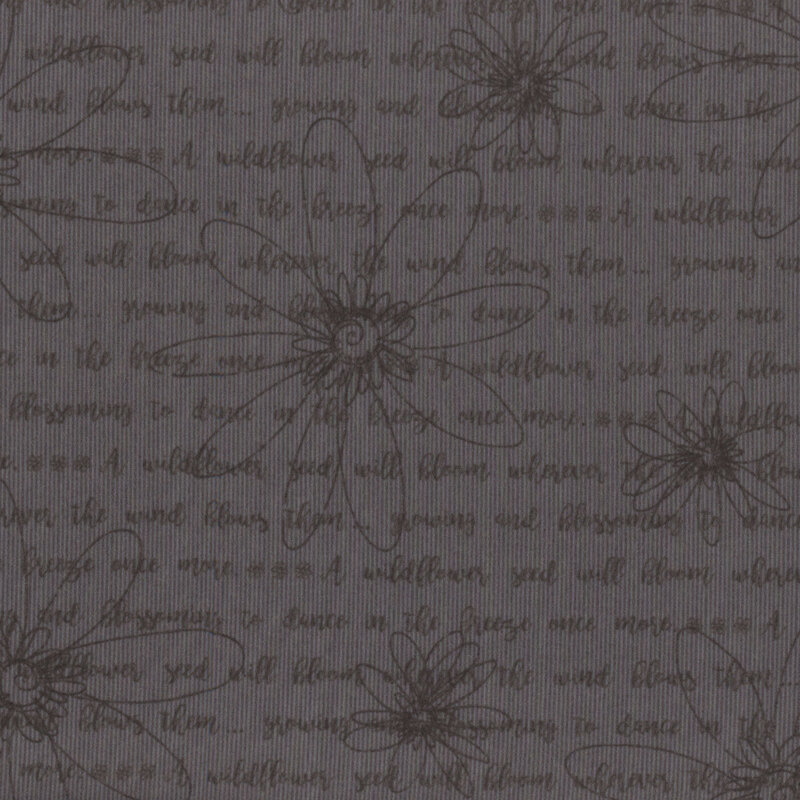 and blossoming to dance in the breeze once more. ***
wildflower seed will bloom wherever the wind blows them
wind blows them... growing and blossoming to dance in the
more. *** A wildflower seed will bloom wherever the wind
to dance in the breeze once more. *** A wildflower
seed will bloom wherever the wind blows them... growing
them... growing and blossoming to dance in the breeze once
in the breeze once more. *** A wildflower seed will bloom
blossoming to dance in the breeze once more. *** A wildflower
*** A wildflower seed will bloom wherever the wind
the wind blows them... growing and blossoming to dance
breeze once more. *** A wildflower seed will bloom wherever
and blossoming to dance in the breeze once more. *** A
wildflower seed will bloom wherever the wind blows them...
blows them... growing and blossoming to dance in the
more. *** A wildflower seed will bloom wherever the